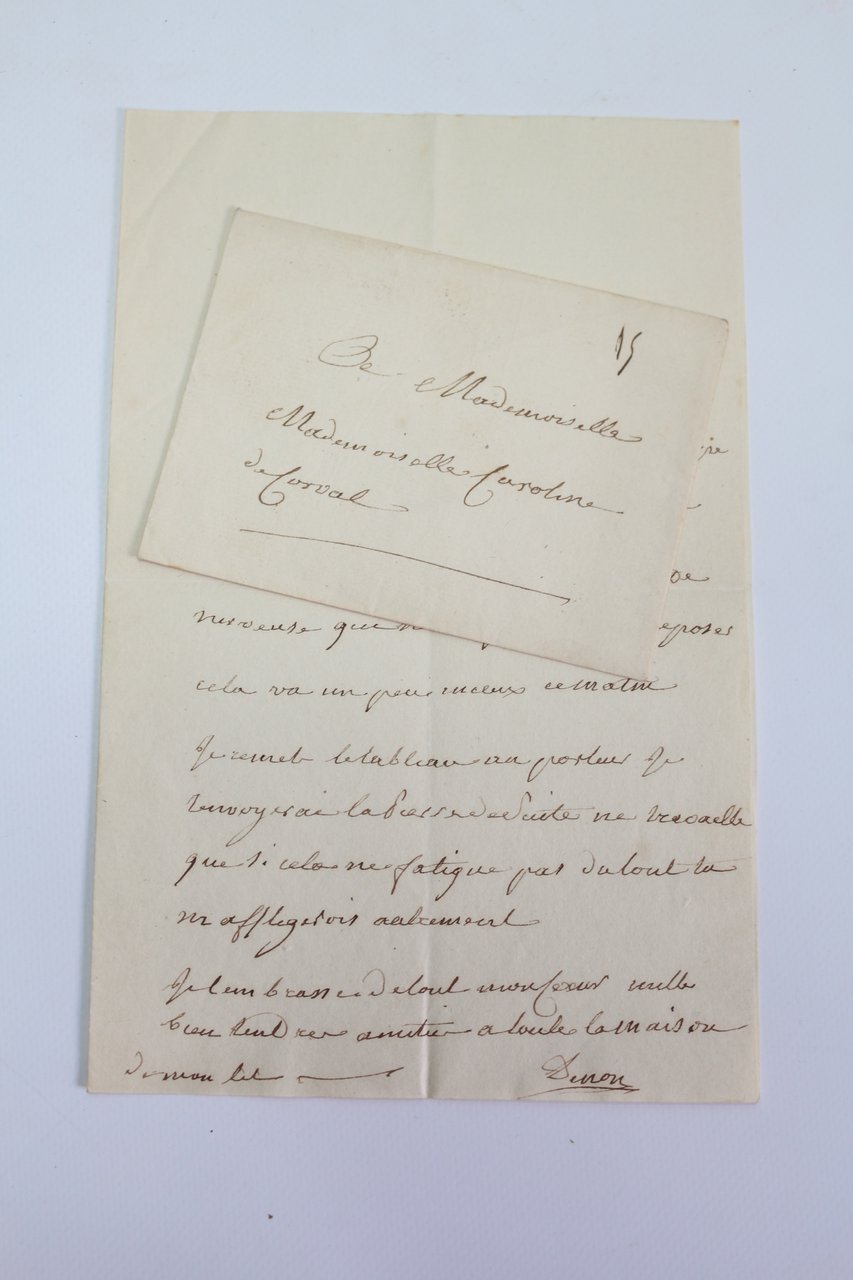 15
A Mademoiselle
Mademoiselle Caroline
de Corval
nerveuse que eposer
cela va un peu mieux ce matin
Je remet le tableau au porteur Je
t'envoyerai la Pierre de Suite ne travaille
que si cela ne fatigue pas du tout tu
m'affligerois autrement
Je t'embrasse de tout mon Coeur mille
bien tendres amitie a toute la maison
de mon lit Denon